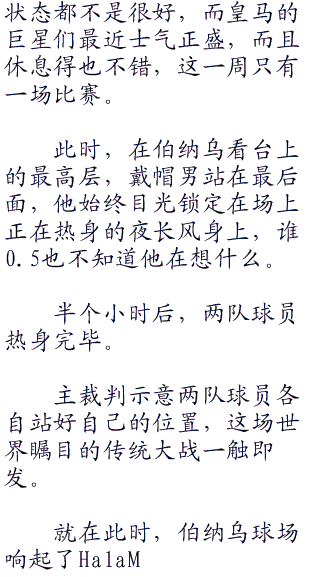 状态都不是很好，而皇马的
巨星们最近士气正盛，而且
休息得也不错，这一周只有
一场比赛。
此时，在伯纳乌看台上
的最高层，戴帽男站在最后
面，他始终目光锁定在场上
正在热身的夜长风身上，谁
0.5也不知道他在想什么。
半个小时后，两队球员
热身完毕。
主裁判示意两队球员各
自站好自己的位置，这场世
界瞩目的传统大战一触即
发。
就在此时，伯纳乌球场
响起了HalaM